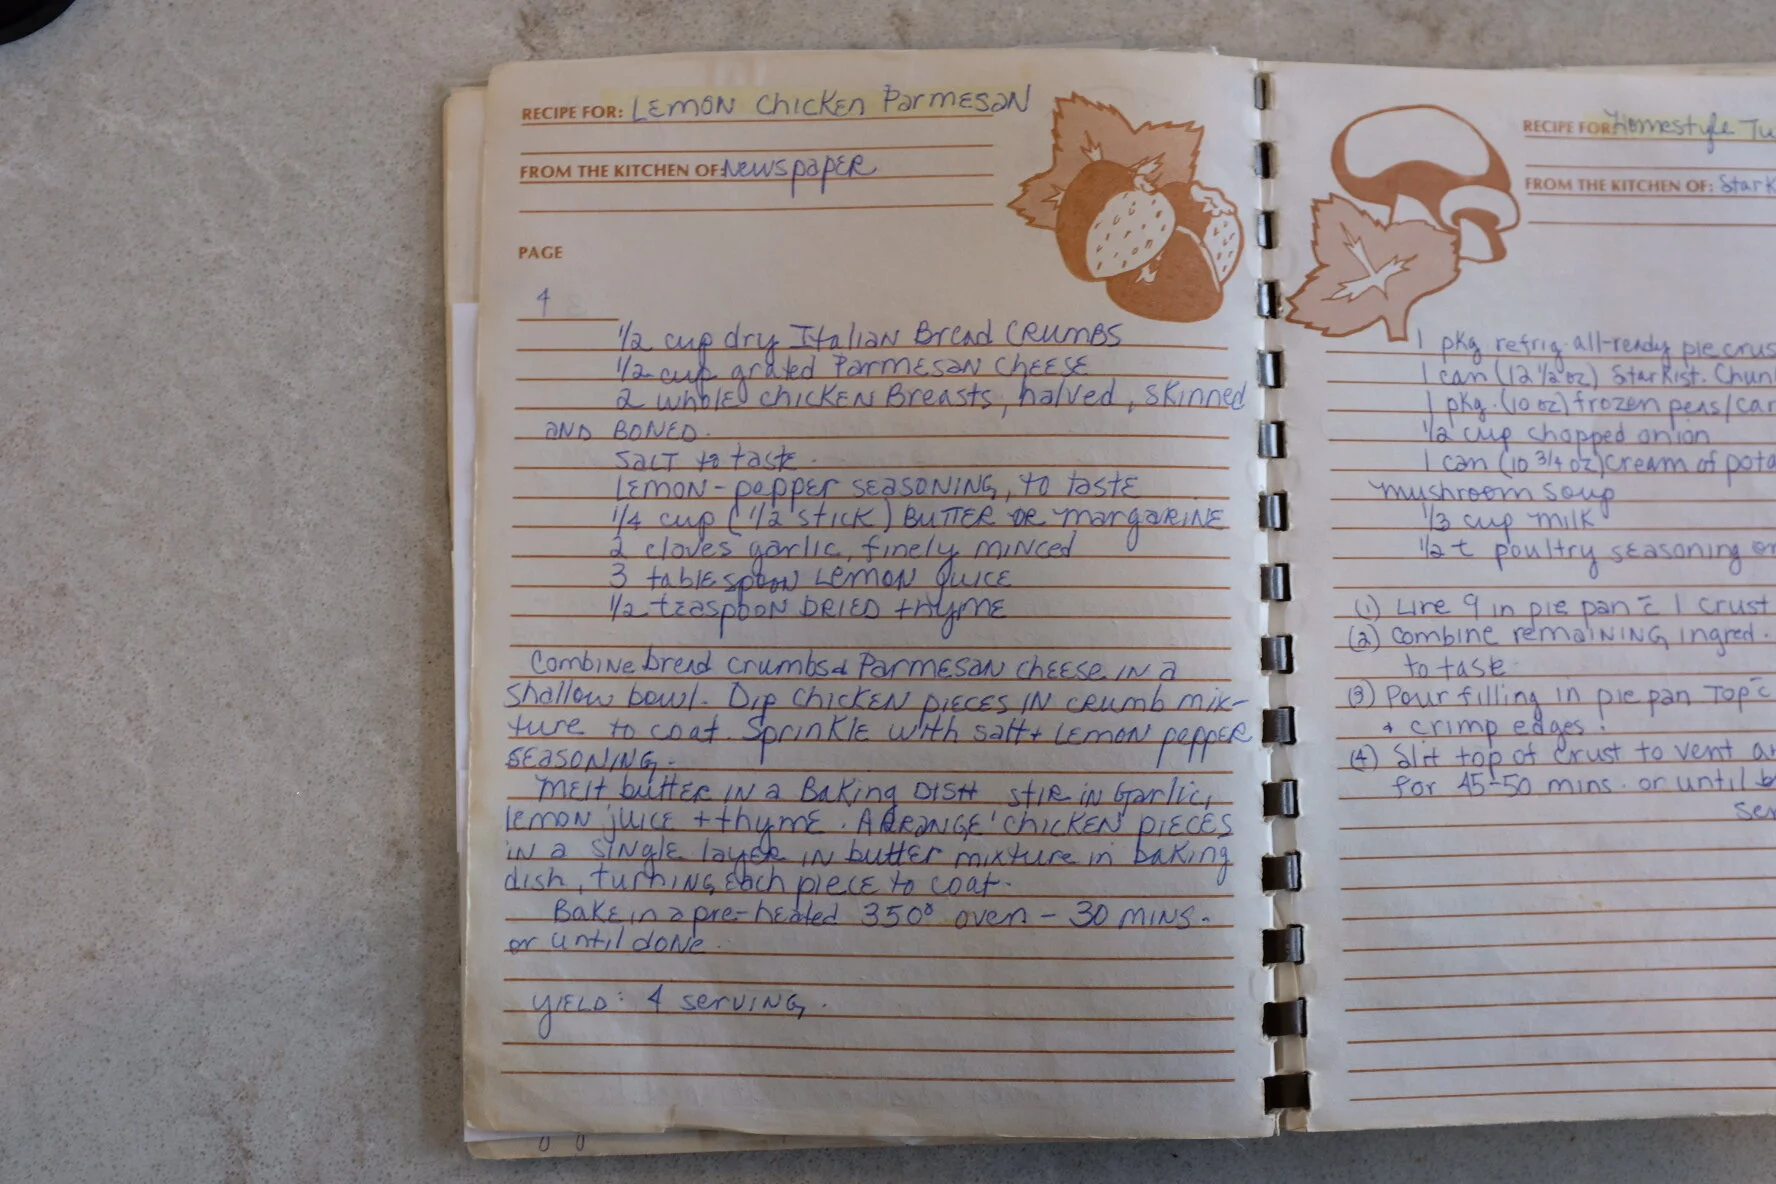 RECIPE FOR: LEMON CHICKEN PARMESAN
FROM THE KITCHEN OF: NEWSPAPER
PAGE
4
1/2 cup dry Italian Bread CRUMBS
1/2 cup grated PARMESAN CHEESE
2 whole CHICKEN Breasts, halved, SKINNED
AND BONED.
SALT to taste.
LEMON-pepper SEASONING, to taste
1/4 cup (1/2 STICK) BUTTER OR MARGARINE
2 cloves garlic, finely MINCED
3 tablespoon LEMON JUICE
1/2 teaspoon DRIED thyme
Combine bread crumbs & PARMESAN CHEESE IN a
shallow bowl. Dip CHICKEN PIECES IN CRUMB MIX-
ture to coat. Sprinkle with salt + LEMON pepper
SEASONING.
MELT butter IN a BAKING DISH stir in Garlic,
lemon juice + thyme. ARRANGE CHICKEN PIECES
in a SINGLE layer IN butter mixture in baking
dish, turning each piece to coat.
Bake in a pre-heated 350° oven - 30 MINS.
or until done.
YIELD: 4 SERVING.
RECIPE FOR: Homestyle Tu
FROM THE KITCHEN OF: StarK
1 pkg. refrig. all-ready pie crus
1 can (12 1/2 oz) StarKist. Chun
1 pkg. (10 oz) frozen peas/car
1/2 cup chopped onion
1 can (10 3/4 oz) cream of pota
mushroom soup
1/3 cup milk
1/2 t poultry seasoning or
(1) Line 9 in pie pan c̄ 1 crust
(2) Combine remaining ingred.
to taste
(3) Pour filling in pie pan Top c̄
+ crimp edges.
(4) Slit top of crust to vent an
for 45-50 mins. or until b
Ser